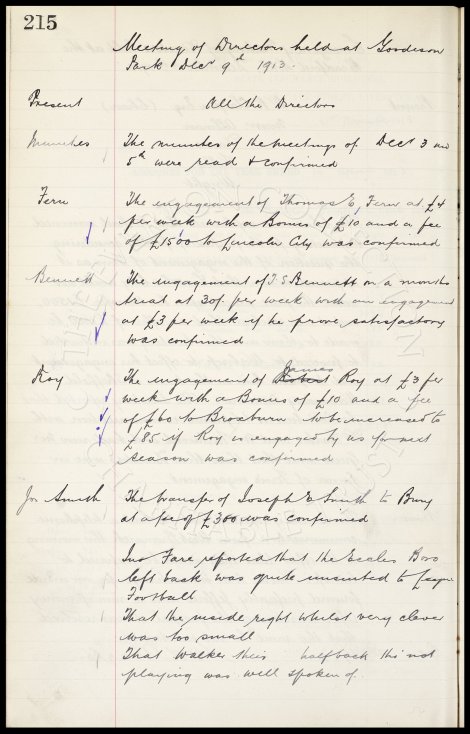 215
Meeting of Directors held at Goodison
Park Decr 9th 1913.
Present All the Directors
Minutes The minutes of the Meetings of Decr 3 and
5th were read & confirmed
Fern The engagement of Thomas E. Fern at £4
per week with a Bonus of £10 and a fee
of £1500 to Lincoln City was confirmed
Bennett The engagement of J S Bennett on a months
trial at 30/- per week with an engagement
at £3 per week if he prove satisfactory
was confirmed
Roy The engagement of Robert James Roy at £3 per
week with a Bonus of £10 and a fee
of £60 to Broxburn to be increased to
£85 if Roy is engaged by us for next
season was confirmed
Jos Smith The transfer of Joseph E Smith to Bury
at a fee of £300 was confirmed
Jno Fare reported that the Eccles Boro
left back was quite unsuited to League
Football
That the inside right whilst very clever
was too small
That Walker their halfback tho not
playing was well spoken of.